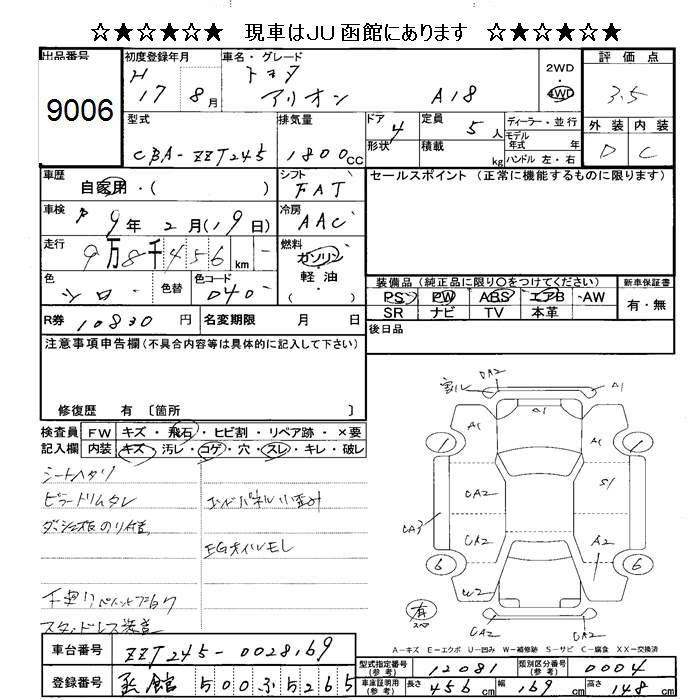 ☆★☆★☆★ 現車はJU函館にあります ☆★☆★☆★
出品番号 初度登録年月 車名・グレード 評価点
9006 H17 8月 トヨタ アリオン A18 2WD・4WD 3.5
型式 排気量 ドア 4 定員 5人 ディーラー・並行 外装 内装
CBA-ZZT245 1800CC 形状 積載 kg モデル年式 年式 ハンドル 左・右 D C
車歴 自家用・( ) シフト FAT セールスポイント (正常に機能するものに限ります)
車検 9年 2月(19日) 冷房 AAC
走行 9万8千456km 燃料 ガソリン・軽油 ( )
色 シロ 色替 色コード 040 装備品 (純正品に限り○をつけてください) 新車保証書
PS・PW・ABS・エアB・AW 有・無
SR ナビ TV 本革
R券 10830円 名変期限 月 日 後日品
注意事項申告欄 (不具合内容等は具体的に記入して下さい)
修復歴 有 〔箇所 〕
検査員 FW キズ・飛石・ヒビ割・リペア跡・×要
記入欄 内装 キズ・汚レ・コゲ・穴・スレ・キレ・破レ
シートヘタリ
ピラートリムタレ エンドパネル小歪み
EGオイルモレ
スタッドレス装着
CA2 A1
A1
1 A1 1
CA2 S1
CA3
CA2 A2
6 W2 6
有 スペア CA2
A－キズ E－エクボ U－凹み W－補修跡 S－サビ C－腐食 XX－交換済
車台番号 ZZT245-0028169
型式指定番号(参考) 12081 類別区分番号(参考) 0004
登録番号 函館 500ふ5265
車庫証明用(参考) 長さ 456cm 幅 169cm 高さ 148cm